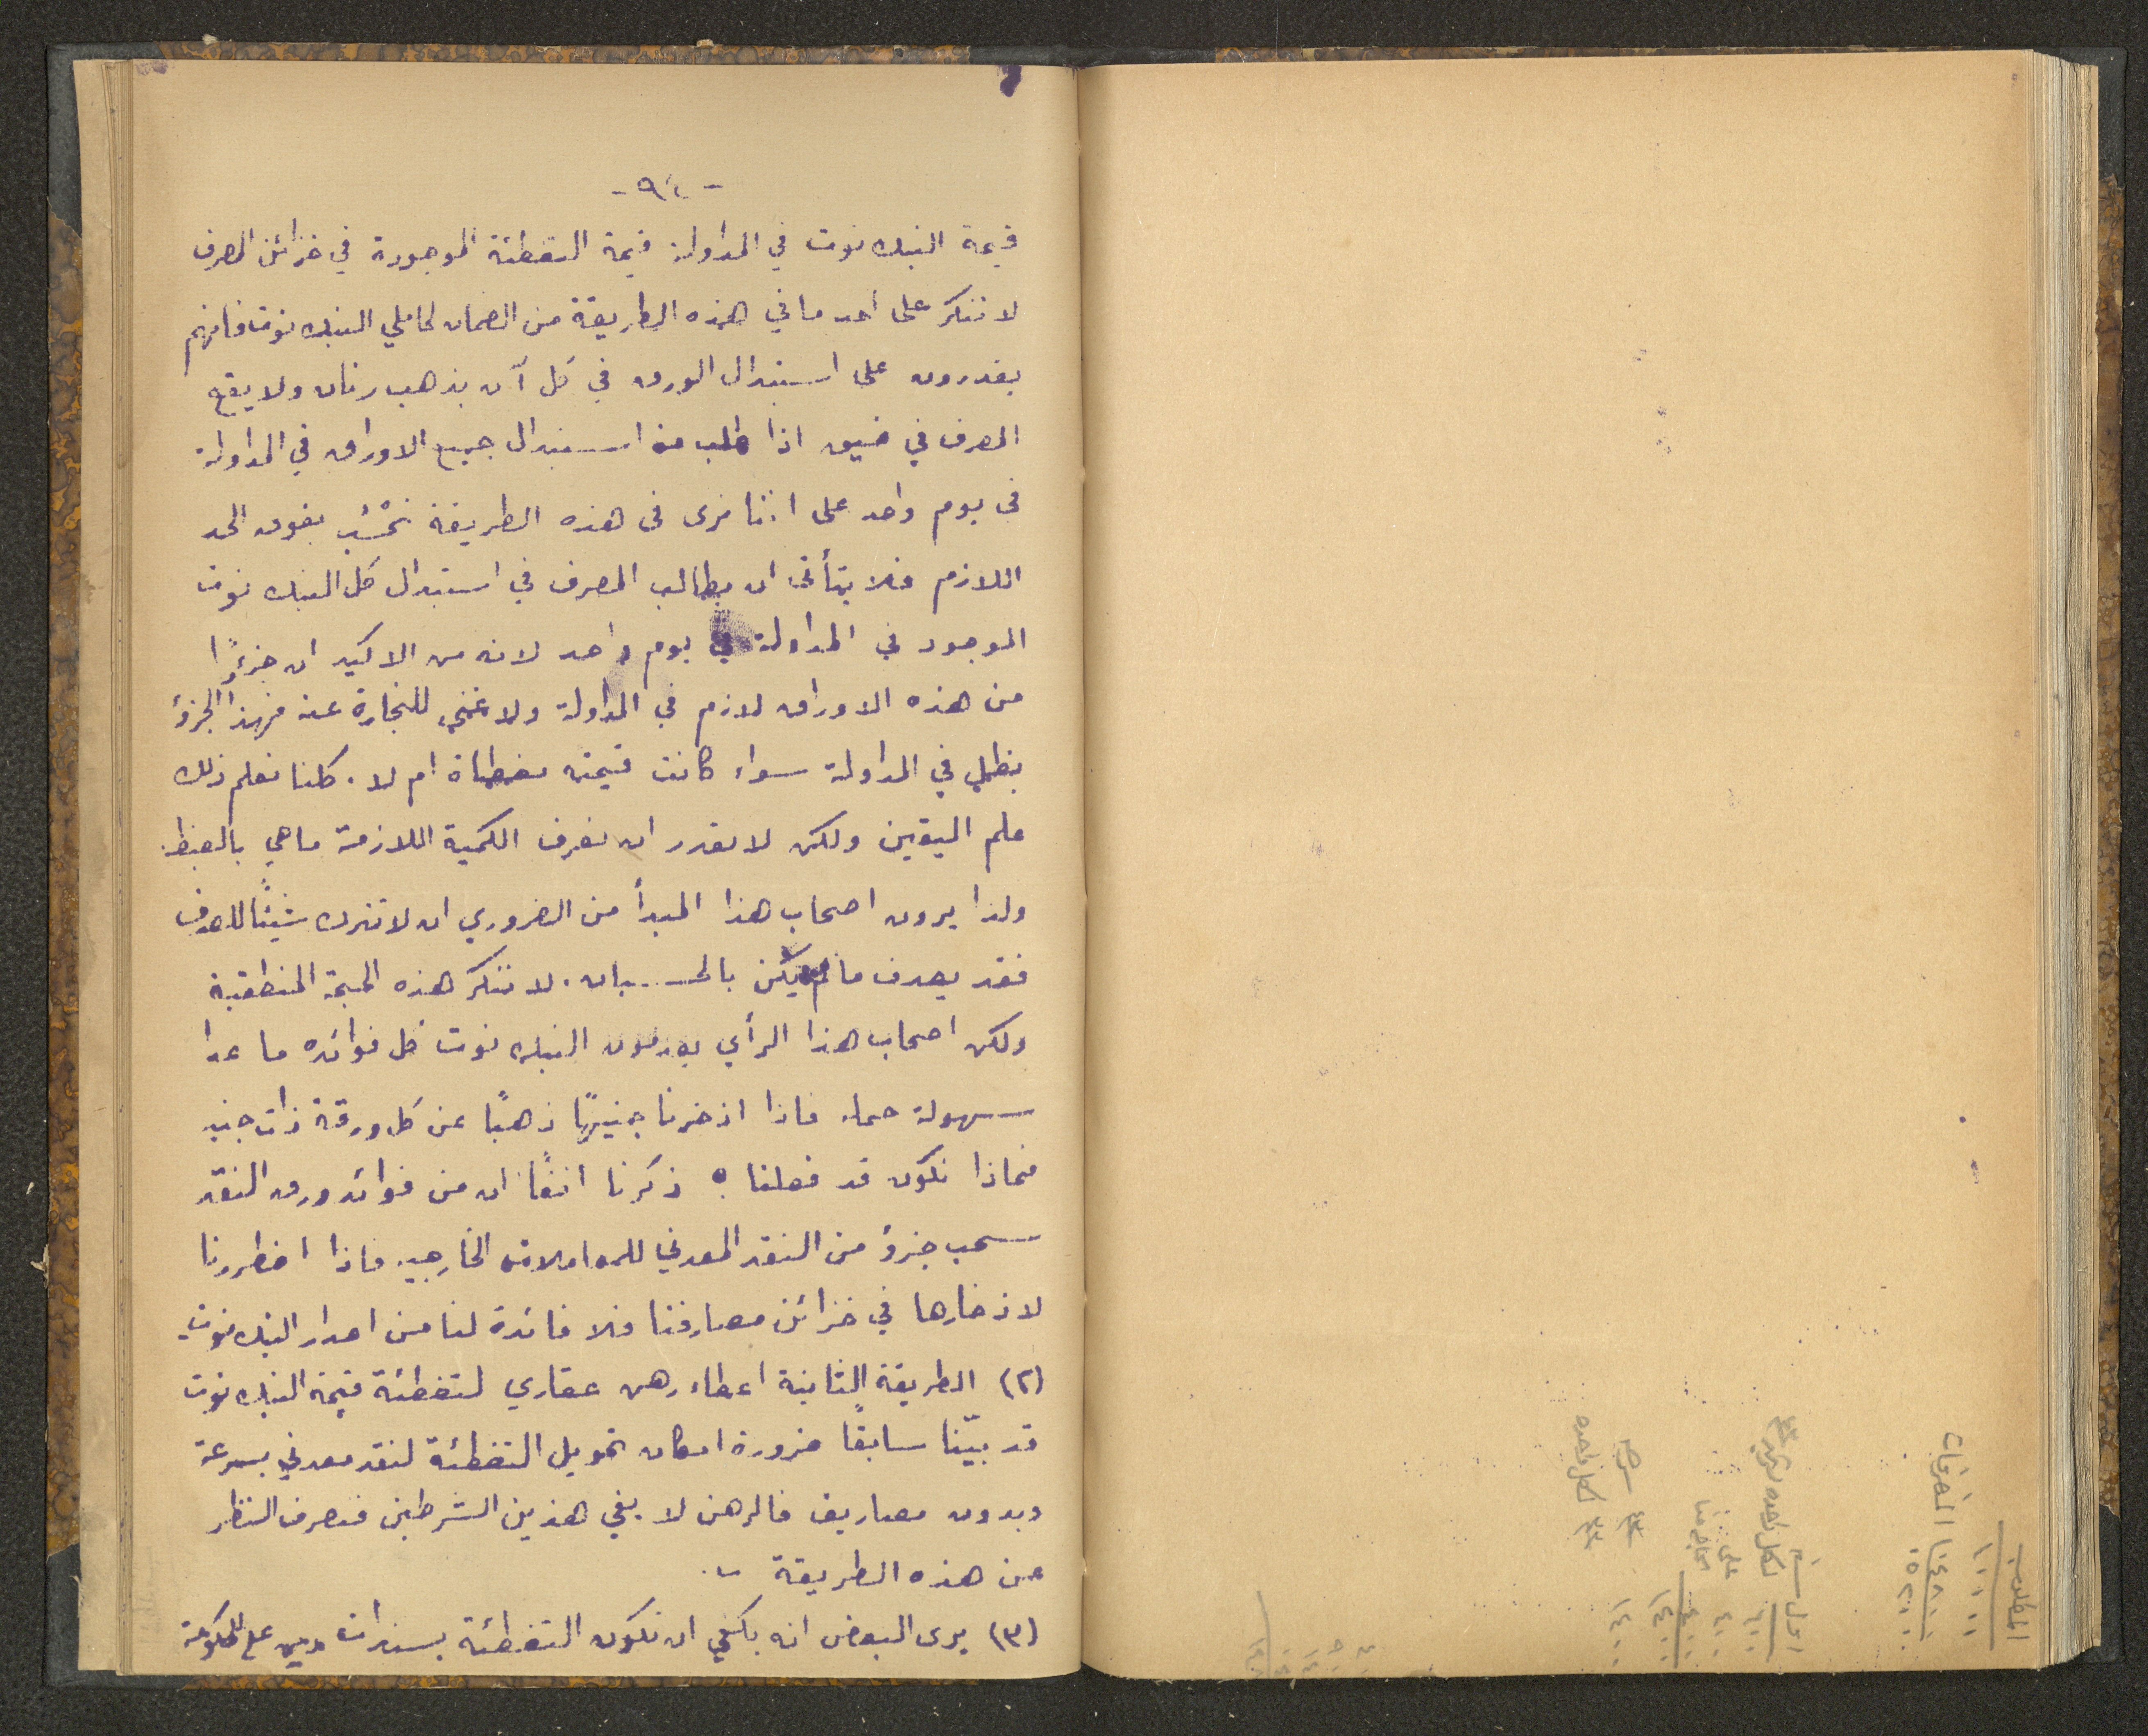 -٩٤-
قيمة البنك نوت في المداولة قيمة التغطئة الموجودة في خزائن المصرف
لا ننكر على احد ما في هذه الطريقة من الضمان لحاملي البنك نوت فانهم
يقدرون على استبدال الورق في كل آن بذهب رنان ولا يقع
المصرف في ضيق اذا طلب منه استبدال جميع الاوراق في المداولة
في يوم واحد على اننا نرى في هذه الطريقة تحسُّب يفوق الحد
اللازم فلا يتأتى ان يطالب المصرف في استبدال كل البنك نوت
الموجود في المداولة في يوم واحد لانه من الاكيد ان جزءًا
من هذه الاوراق لازم في المداولة ولا غنى للتجارة عنه فهذا الجزؤ
يظل في المداولة سواء كانت قيمته مغطاة ام لا. كلنا نعلم ذلك
علم اليقين ولكن لا نقدر ان نعرف الكمية اللازمة ما هي بالضبط.
ولذا يرون اصحاب هذا المبدأ من الضروري ان لا نترك شيئًا للصدف
فقد يصدف ما لم يكن بالحسبان. لا ننكر هذه الحجة المنطقية
ولكن اصحاب هذا الرأي يعدمون البنك نوت كل فوائده ما عدا
سهولة حمله فاذا اذخرنا جنيهًا ذهبًا عن كل ورقة ذات جنيه
فماذا نكون قد فعلنا؟ ذكرنا انفًا ان من فوائد ورق النقد
سحب جزؤ من النقد المعدني للمعاملات الخارجيه فاذا اضطررنا
لاذخارها في خزائن مصارفنا فلا فائدة لنا من اصدار البنك نوت.
(٢) الطريقة الثانية اعطاء رهن عقاري لتغطئة قيمة البنك نوت
قد بيّنا سابقًا ضرورة امكان تحويل التغطئة لنقد معدني بسرعة
وبدون مصاريف فالرهن لا يفي هذين الشرطين فنصرف النظر
عن هذه الطريقة.
(٣) يرى البعض انه يكفي ان تكون التغطئة بسندات دين على الحكومة
المطلوب